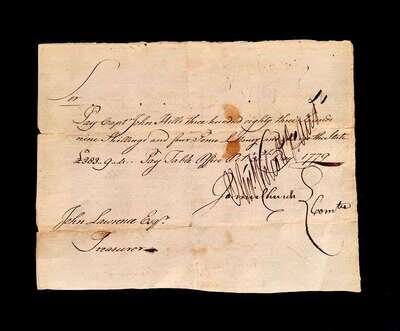 Sir
Pay Capt John Mills three hundred eighty three Pounds
nine Shillings and four Pence and the State
£383.9.4.. Pay Table Office 1779
James Church
Comtee
John Lawrence Esqr.
Treasurer